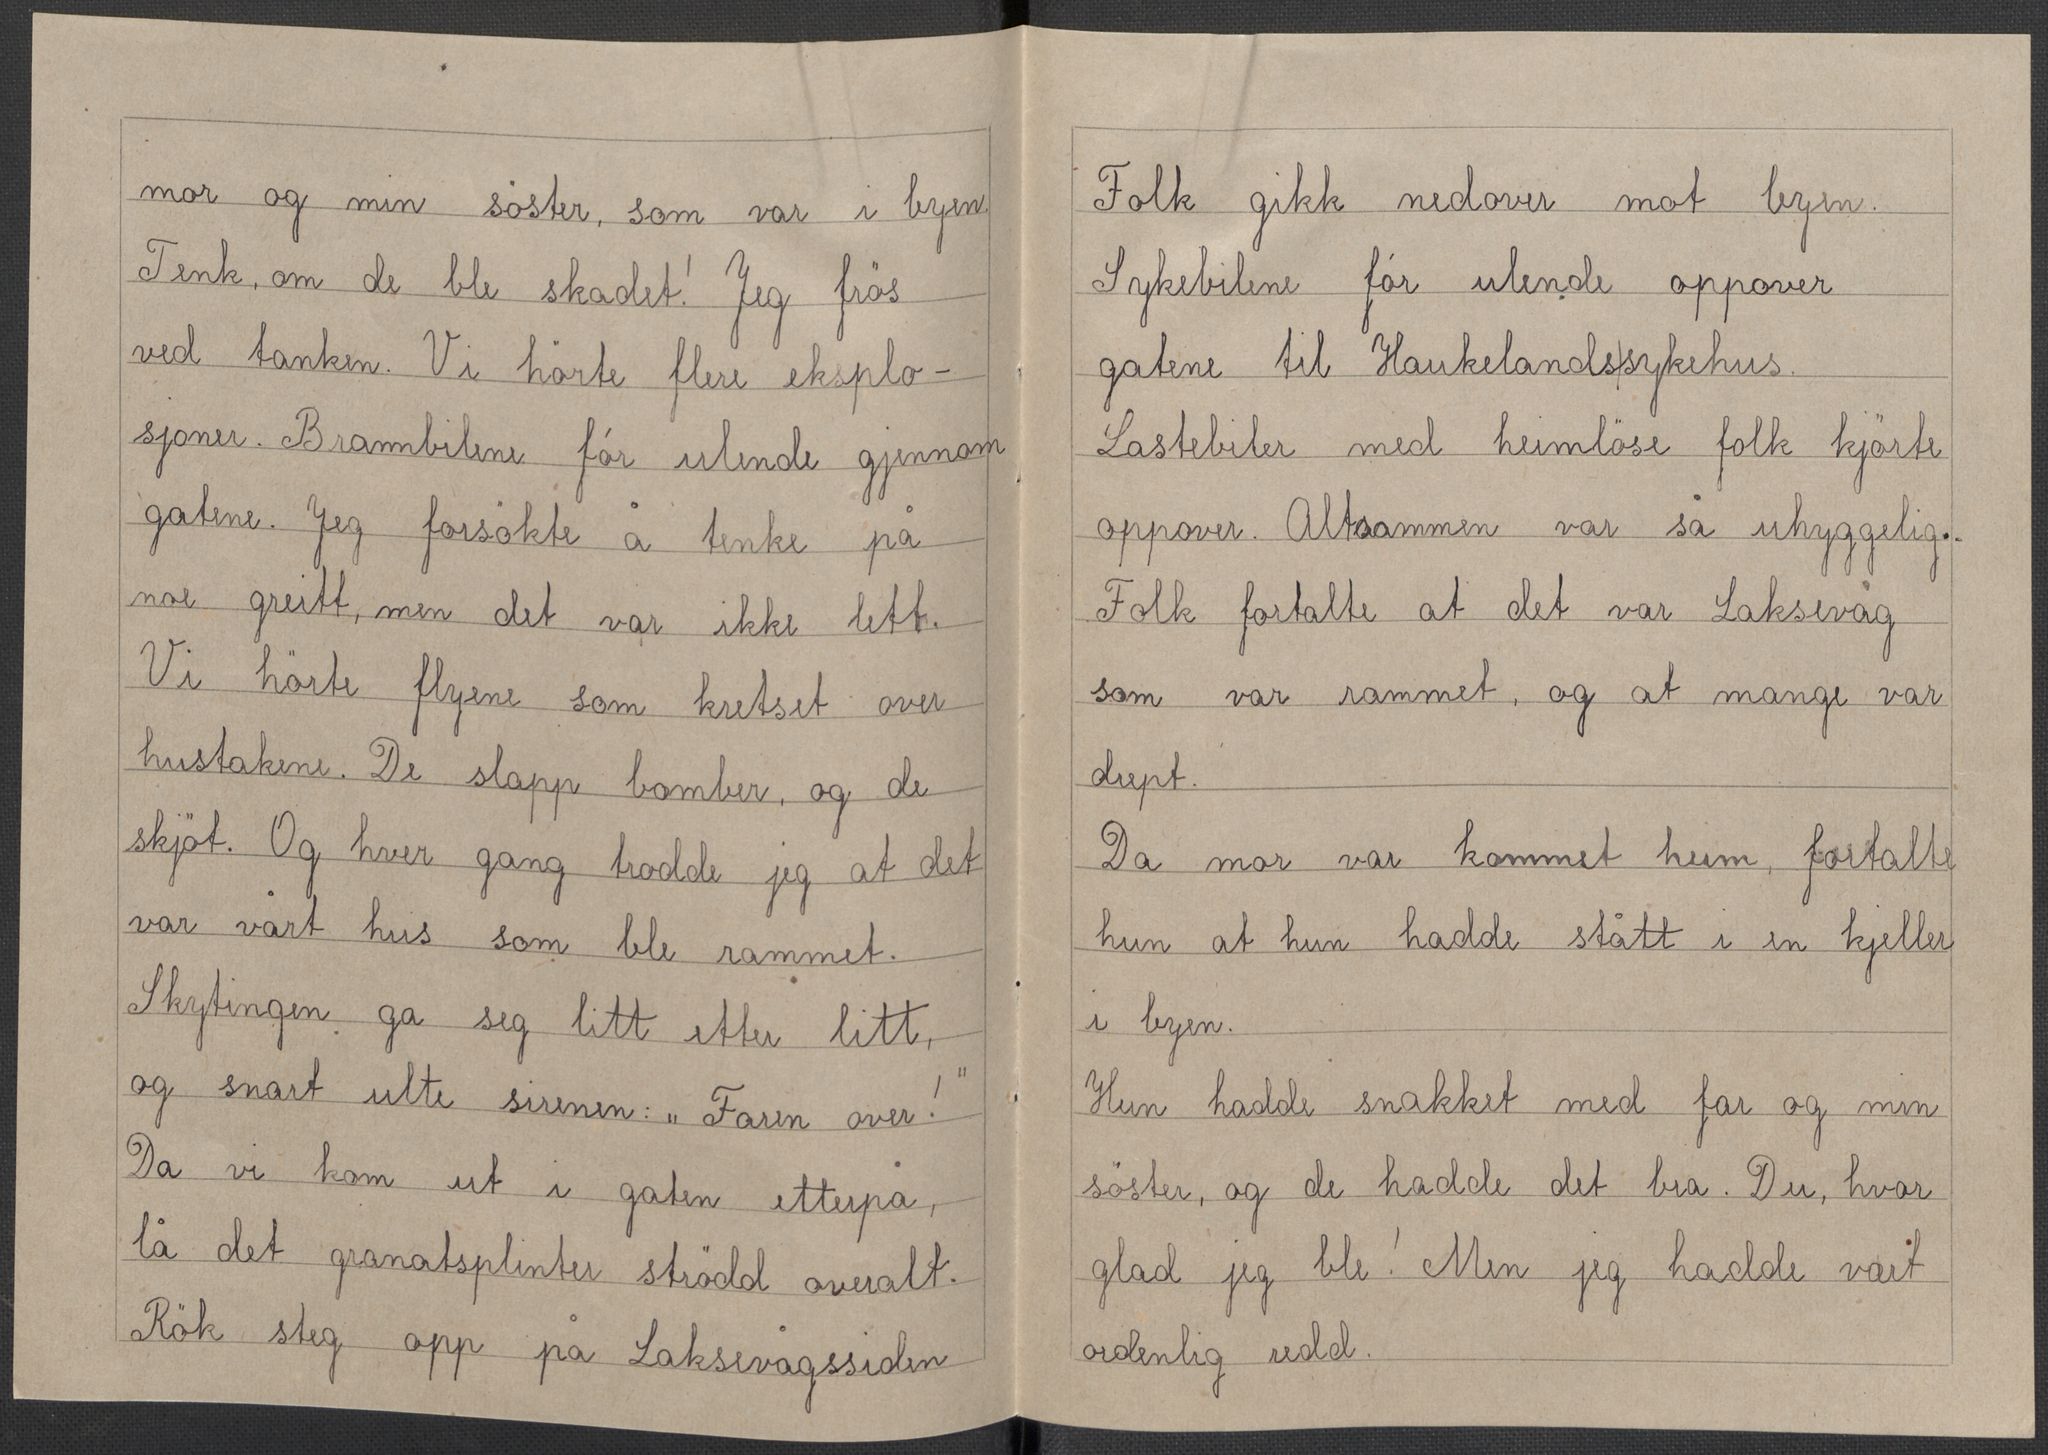 mor og min söster, som var i byen.
Tenk, om de ble skadet! Jeg frös
ved tanken. Vi hörte flere eksplo-
sjoner. Brannbilene fór ulende gjennom
gatene. Jeg forsökte å tenke på
noe greitt, men det var ikke lett.
Vi hörte flyene som kretset over
hustakene. De slapp bomber, og de
skjöt. Og hver gang trodde jeg at det
var vårt hus som ble rammet.
Skytingen ga seg litt etter litt,
og snart ulte sirenen: „Faren over!"
Da vi kom ut i gaten etterpå,
lå det granatsplinter strödd overalt.
Rök steg opp på Laksevågssiden
Folk gikk nedover mot byen.
Sykebilene fór ulende oppover
gatene til Haukelandssykehus.
Lastebiler med heimlöse folk kjörte
oppover. Altsammen var så uhyggelig.
Folk fortalte at det var Laksevåg
som var rammet, og at mange var
drept.
Da mor var kommet heim, fortalte
hun at hun hadde stått i en kjeller
i byen.
Hun hadde snakket med far og min
söster, og de hadde det bra. Du, hvor
glad jeg ble! Men jeg hadde vært
ordenlig redd.